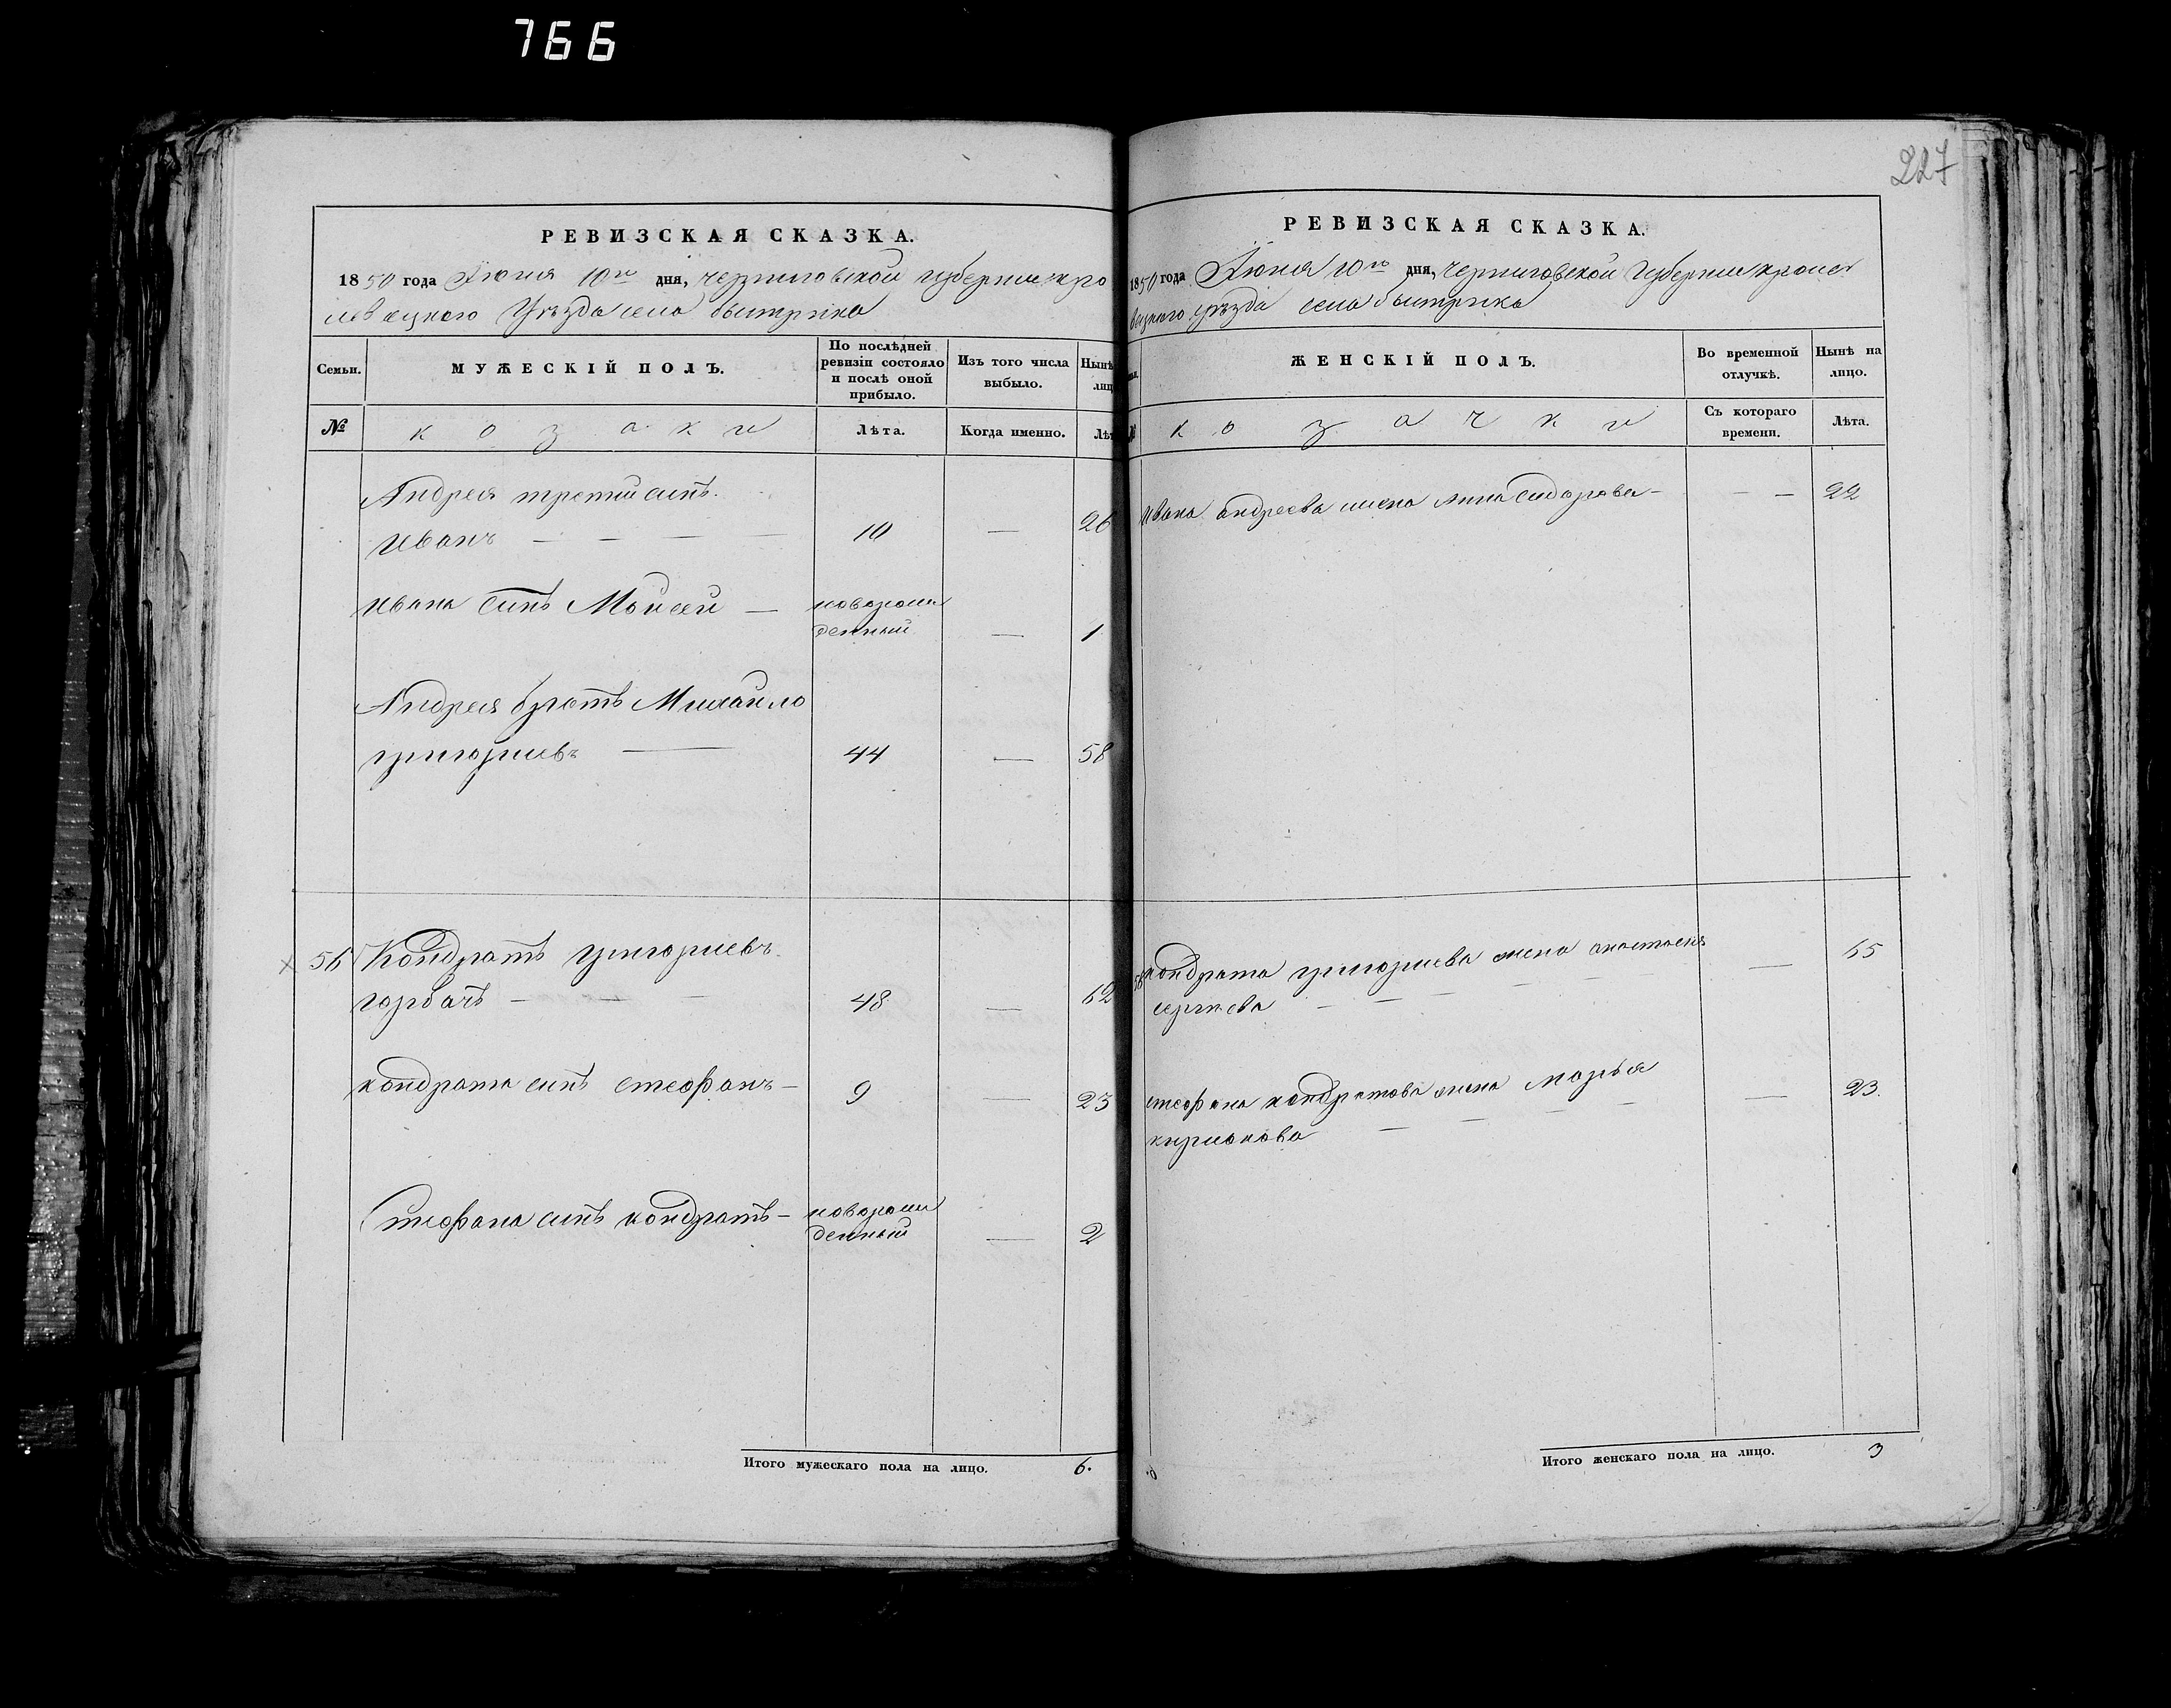 766
227
РЕВИЗСКАЯ СКАЗКА.
1850 года Іюня 10го дня, черниговской губернии кро
левецкого Уѣзда села быстрика
Семьи.
МУЖЕСКІЙ ПОЛЪ.
По послѣдней
ревизіи состояло
и послѣ оной
прибыло.
Изъ того числа
выбыло.
Нынѣ
лиц
№
козаки
Лѣта.
Когда именно.
Лѣт
Андрея третий синъ
Иванъ — — — — 10 — 26
Ивана синъ Мойсей — новорож
денный — 1
Андрея братъ Михайло
григориевъ — 44 — 58
56 Кондратъ григориевъ
горбачъ — — — 48 — 62
кондрата синъ стефанъ — 9 — 23
Стефана синъ кондратъ — новорож
денный — 2
Итого мужескаго пола на лицо. 6.
РЕВИЗСКАЯ СКАЗКА.
1850 года Іюня 10го дня, черниговской губернии кролев
вецкого уѣзда села быстрика
ЖЕНСКІЙ ПОЛЪ.
Во временной
отлучкѣ.
Нынѣ на
лицо.
козачки
Съ котораго
времени.
Лѣта.
Ивана андреева жена Анна Сидорова — — — 22
56 кондрата григориева жена анастасия — 65
сергеева — — — —
стефана кондратова жена марья — 23.
кириакова — — — —
Итого женскаго пола на лицо. 3